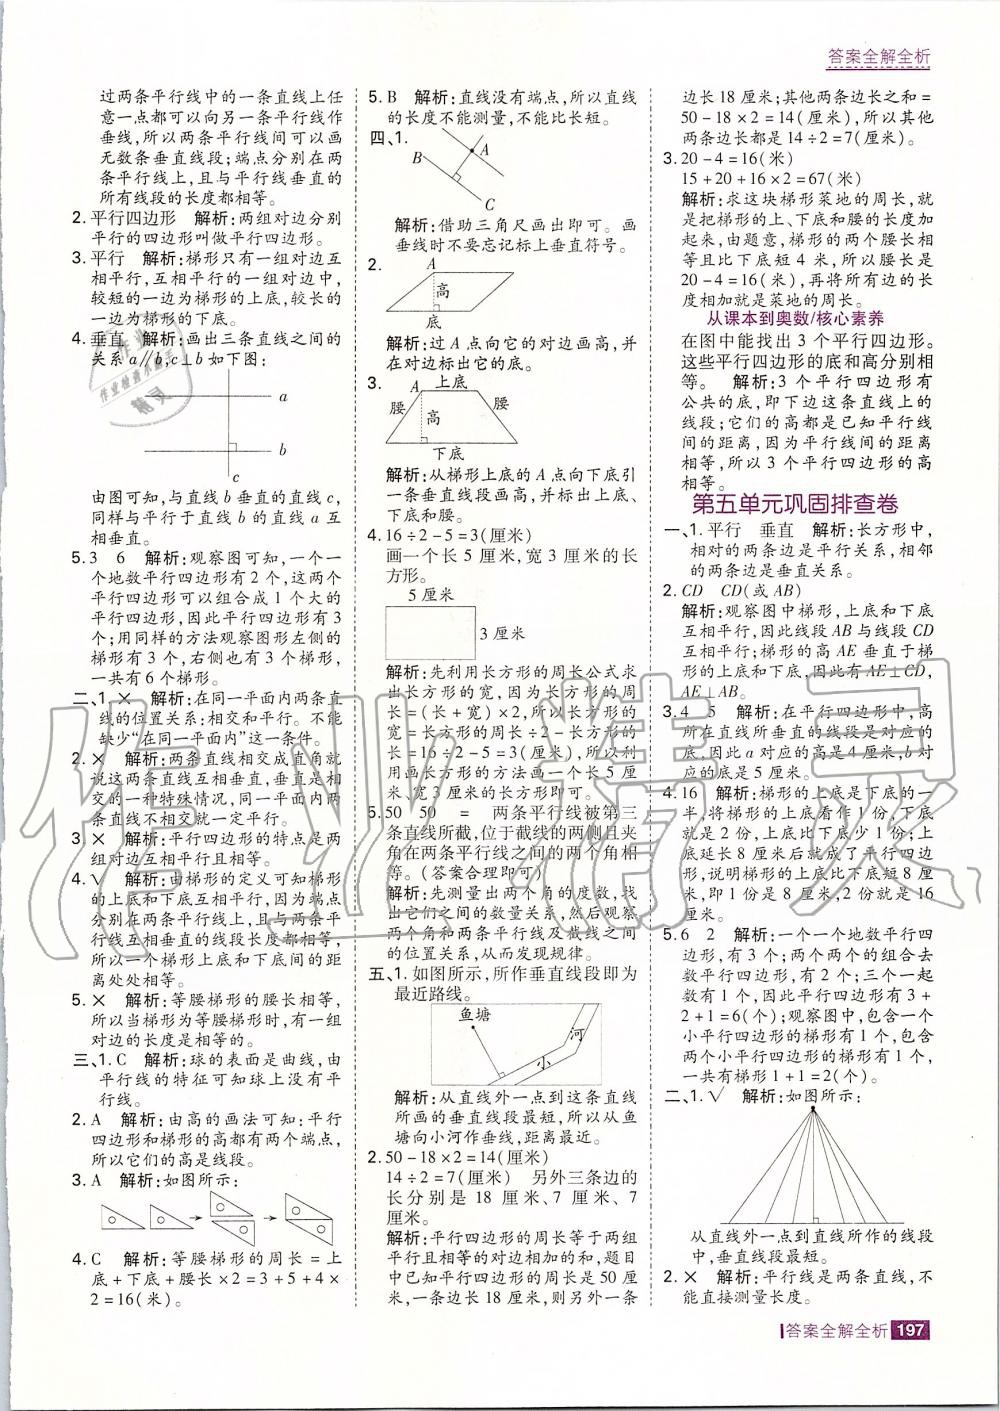 答案全解全析
过两条平行线中的一条直线上任
意一点都可以向另一条平行线作
垂线,所以两条平行线间可以画
无数条垂直线段;端点分别在两
条平行线上,且与平行线垂直的
所有线段的长度都相等。
2.平行四边形 解析:两组对边分别
平行的四边形叫做平行四边形。
3.平行 解析:梯形只有一组对边互
相平行,互相平行的一组对边中,
较短的一边为梯形的上底,较长的
一边为梯形的下底。
4.垂直 解析:画出三条直线之间的
关系a∥b,c⊥b如下图:
a
b
c
由图可知,与直线b垂直的直线c,
同样与平行于直线b的直线a互
相垂直。
5.3 6 解析:观察图可知,一个一
个地数平行四边形有2个,这两个
平行四边形可以组合成1个大的
平行四边形,因此平行四边形有3
个;用同样的方法观察图形左侧的
梯形有3个,右侧也有3个梯形,
一共有6个梯形。
二、1.× 解析:在同一平面内两条直
线的位置关系:相交和平行。不能
缺少“在同一平面内”这一条件。
2.× 解析:两条直线相交成直角就
说这两条直线互相垂直,垂直是相
交的一种特殊情况,同一平面内两
条直线不相交就一定平行。
3.× 解析:平行四边形的特点是两
组对边互相平行且相等。
4.√ 解析:由梯形的定义可知梯形
的上底和下底互相平行,因为端点
分别在两条平行线上,且与两条平
行线互相垂直的线段长度都相等,
所以一个梯形上底和下底间的距
离处处相等。
5.× 解析:等腰梯形的腰长相等,
所以当梯形为等腰梯形时,有一组
对边的长度是相等的。
三、1.C 解析:球的表面是曲线,由
平行线的特征可知球上没有平
行线。
2.A 解析:由高的画法可知:平行
四边形和梯形的高都有两个端点,
所以它们的高是线段。
3.A 解析:如图所示:
4.C 解析:等腰梯形的周长=上
底+下底+腰长×2=3+5+4×
2=16(米)。
5.B 解析:直线没有端点,所以直线
的长度不能测量,不能比长短。
四、1.
A
B
C
解析:借助三角尺画出即可。画
垂线时不要忘记标上垂直符号。
2.
A
高
底
解析:过A点向它的对边画高,并
在对边标出它的底。
3.
A 上底
腰 高 腰
下底
解析:从梯形上底的A点向下底引
一条垂直线段画高,并标出上底、
下底和腰。
4.16÷2-5=3(厘米)
画一个长5厘米,宽3厘米的长
方形。
5厘米
3厘米
解析:先利用长方形的周长公式求
出长方形的宽,因为长方形的周
长=(长+宽)×2,所以长方形的
宽=长方形的周长÷2-长方形的
长=16÷2-5=3(厘米),所以利
用画长方形的方法画一个长5厘
米、宽3厘米的长方形即可。
5.50 50 = 两条平行线被第三
条直线所截,位于截线的两侧且夹
角在两条平行线之间的两个角相
等。(答案合理即可)
解析:先测量出两个角的度数,找
出它们之间的数量关系,然后观察
两个角和两条平行线及截线之间
的位置关系,从而发现规律。
五、1.如图所示,所作垂直线段即为
最近路线。
鱼塘
小
河
解析:从直线外一点到这条直线
所画的垂直线段最短,所以从鱼
塘向小河作垂线,距离最近。
2.50-18×2=14(厘米)
14÷2=7(厘米) 另外三条边的
长分别是18厘米、7厘米、7
厘米。
解析:平行四边形的周长等于两组
平行且相等的对边相加的和,题目
中已知平行四边形的周长是50厘
米,一条边长18厘米,则另外一条
边长18厘米;其他两条边长之和=
50-18×2=14(厘米),所以其他
两条边长都是14÷2=7(厘米)。
3.20-4=16(米)
15+20+16×2=67(米)
解析:求这块梯形菜地的周长,就
是把梯形的上、下底和腰的长度加
起来,由题意,梯形的两个腰长相
等且比下底短4米,所以腰长是
20-4=16(米),再将所有边的长
度相加就是菜地的周长。
从课本到奥数/核心素养
在图中能找出3个平行四边形。
这些平行四边形的底和高分别相
等。 解析:3个平行四边形有
公共的底,即下边这条直线上的
线段;它们的高都是已知平行线
间的距离,因为平行线间的距离
相等,所以3个平行四边形的高
相等。
第五单元巩固排查卷
一、1.平行 垂直 解析:长方形中,
相对的两条边是平行关系,相邻
的两条边是垂直关系。
2.CD CD(或AB)
解析:观察图中梯形,上底和下底
互相平行,因此线段AB与线段CD
互相平行;梯形的高AE垂直于梯
形的上底和下底,因此有AE⊥CD,
AE⊥AB。
3.4 5 解析:在平行四边形中,高
所在直线所垂直的线段是对应的
底,因此a对应的高是4厘米,b对
应的底是5厘米。
4.16 解析:梯形的上底是下底的一
半,将梯形的上底看作1份,下底
就是2份,上底比下底少1份;上
底延长8厘米后就成了平行四边
形,说明梯形的上底比下底短8厘
米,即1份是8厘米,2份就是16
厘米。
5.6 2 解析:一个一个地数平行四
边形,有3个;两个两个的组合去
数平行四边形,有2个;三个一起
数有1个,因此平行四边形有3+
2+1=6(个);观察图中,包含一个
小平行四边形的梯形有1个,包含
两个小平行四边形的梯形有1个,
一共有梯形1+1=2(个)。
二、1.√ 解析:如图所示:
从直线外一点到直线所作的线段
中,垂直线段最短。
2.× 解析:平行线是两条直线,不
能直接测量长度。
答案全解全析 197
作业精灵